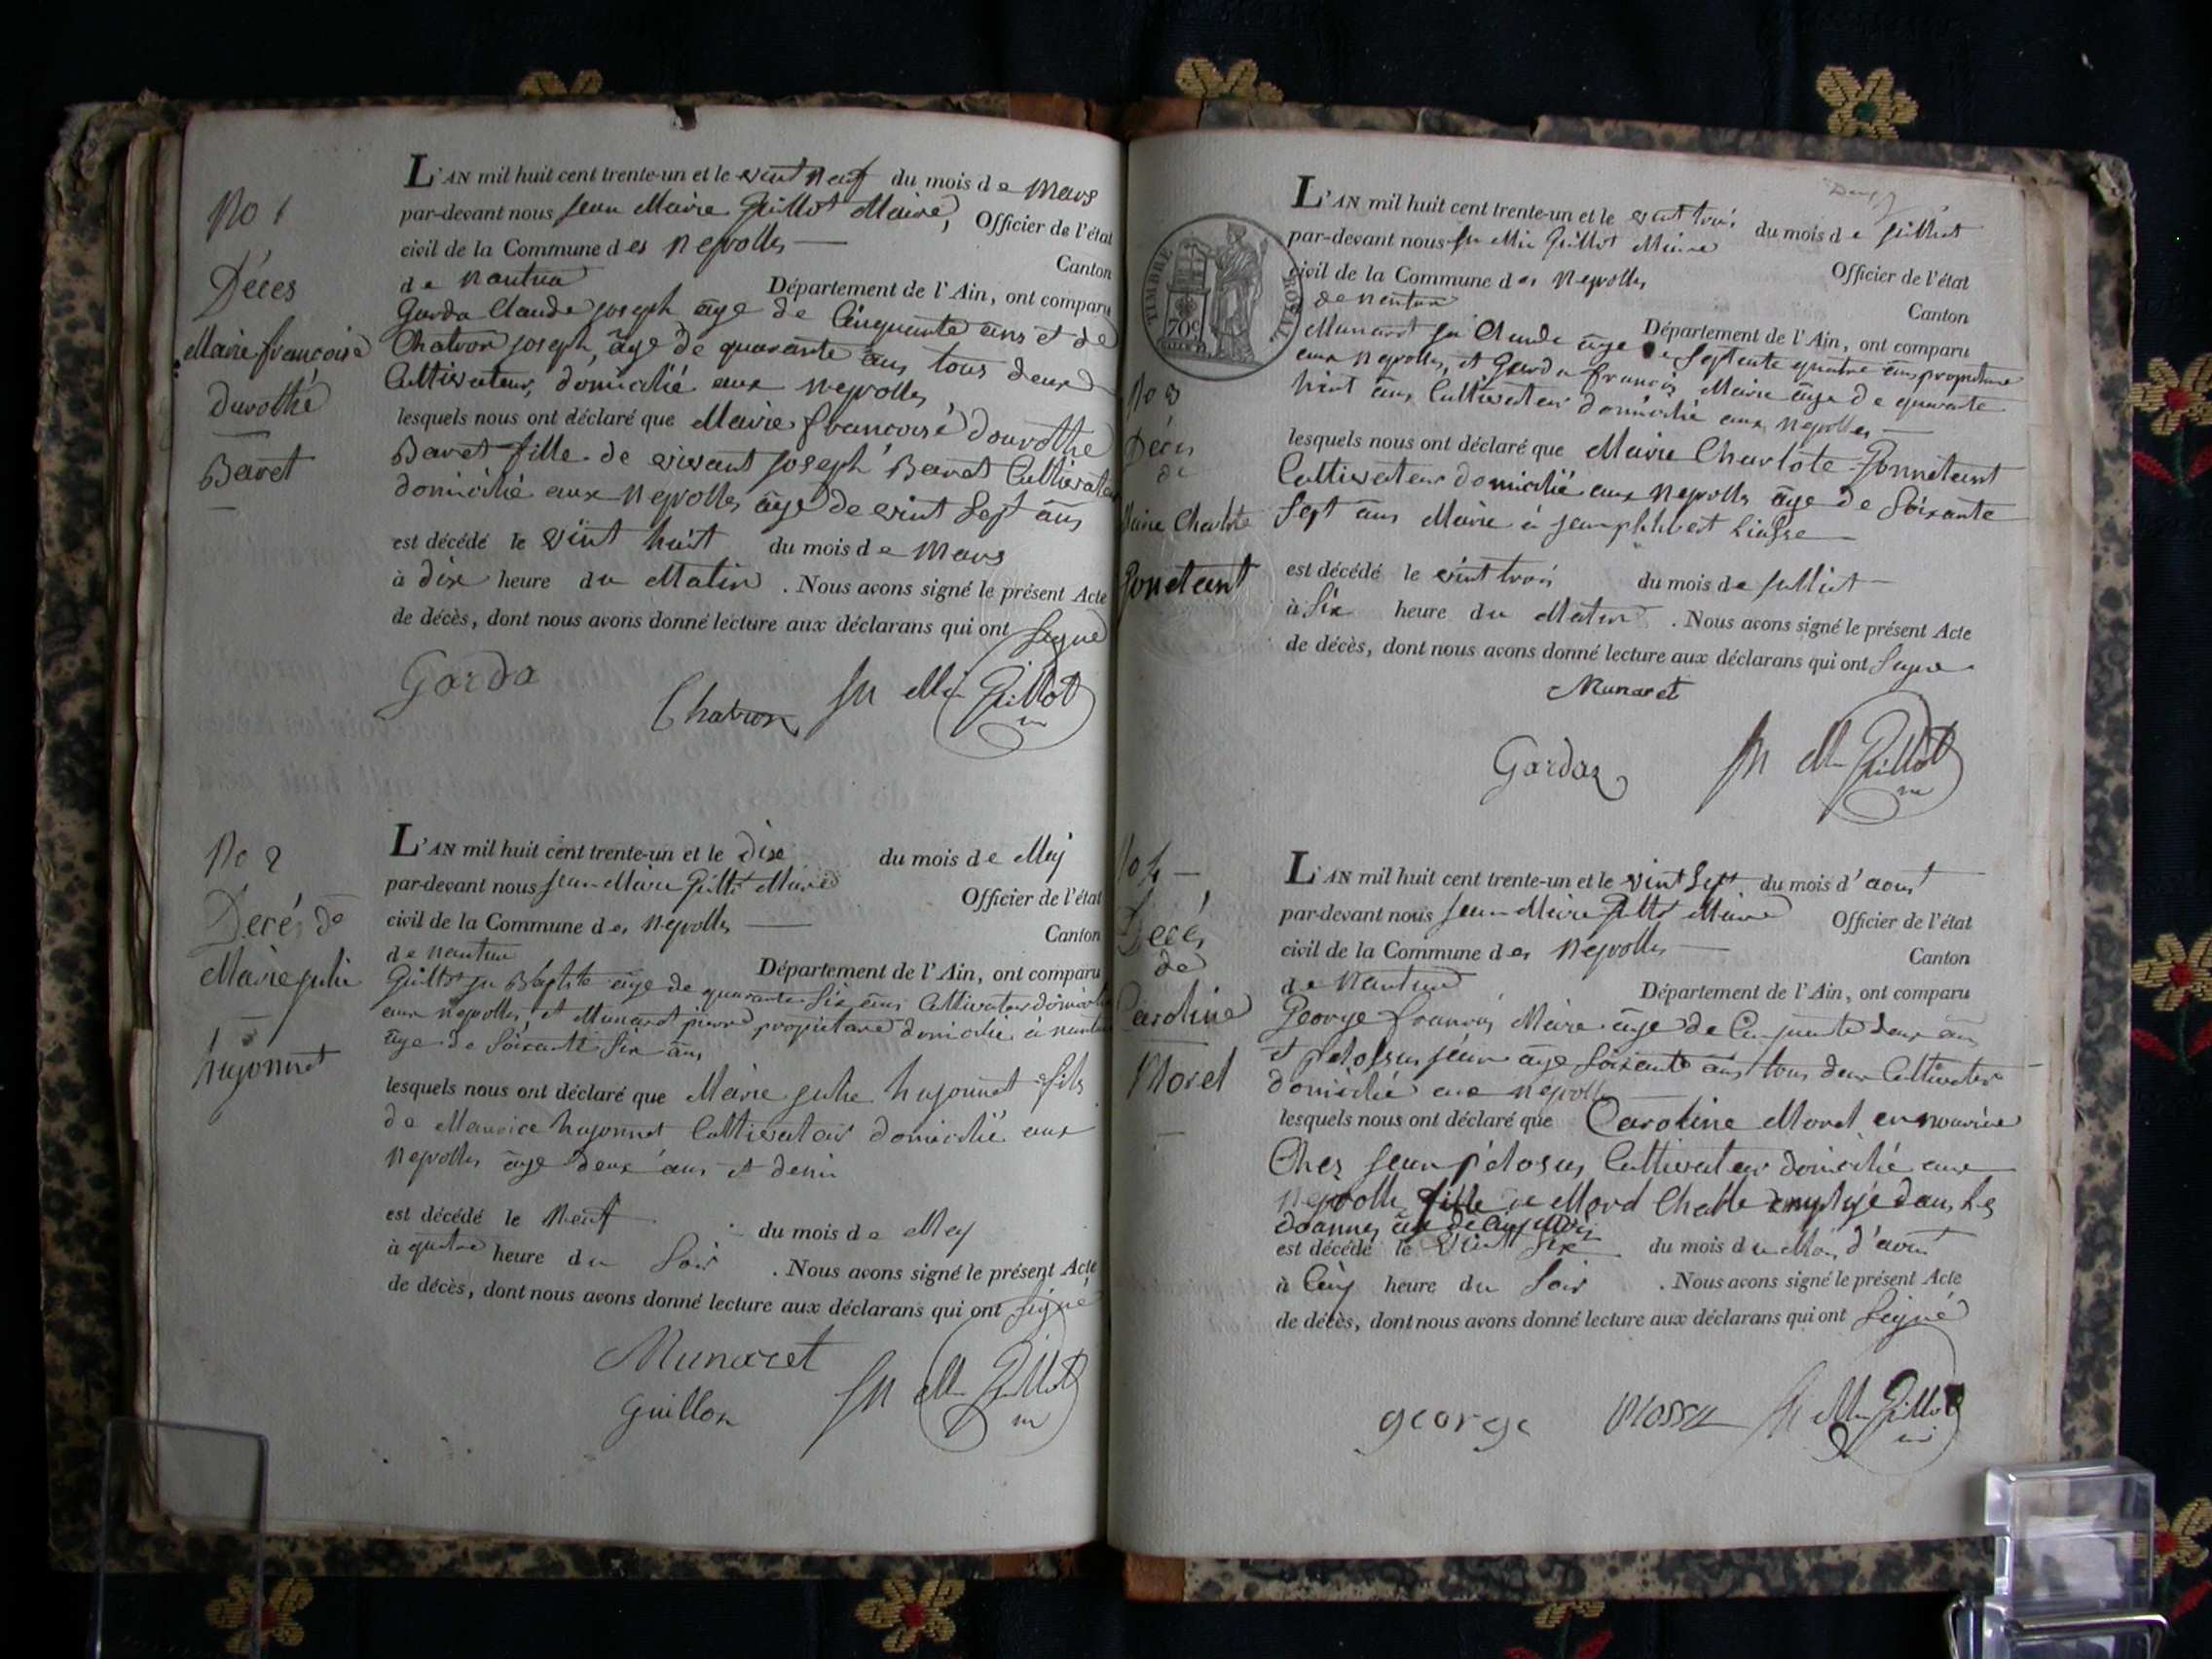 No 1
Déces
Marie françoise
durothé
Baret
L'AN mil huit cent trente-un et le vint neuf du mois de Mars
par-devant nous jean Marie Guillot Maire, Officier de l'état
civil de la Commune des Neyrolles
Canton
de Nantua
Département de l'Ain, ont comparu
Garda Claude joseph âge de Cinquante ans et de
Chatron joseph, âge de quarante ans tous deux
Cultivateur, domicilié aux neyrolles
lesquels nous ont déclaré que Marie françoise dourothe
Baret fille de vivant joseph Baret Cultivateur
domicilié aux Neyrolles âge de vint sept ans
est décédé le vint huit du mois de Mars
à dix heure du Matin . Nous avons signé le présent Acte
de décès, dont nous avons donné lecture aux déclarans qui ont signé
Garda
Chatron
jn Mie Guillot
No 2
Decés de
Marie julie
hugonnet
L'AN mil huit cent trente-un et le dixe du mois de Mey
par-devant nous jean Marie Guillot Maire
Officier de l'état
civil de la Commune des Neyrolles
Canton
de nantua
Département de l'Ain, ont comparu
Guillot jn Baptite âge de quarante six ans Cultivateur domicilie
aux neyrolles, et Munaret pierre propietare domicilie à nantua
âge de soixante six ans
lesquels nous ont déclaré que Marie julie hugonnet fils
de Maurice hugonnet Cultivateur domicilié aux
neyrolles âge deux ans et demi
est décédé le neuf du mois de Mey
à quatre heure du soir . Nous avons signé le présent Acte
de décès, dont nous avons donné lecture aux déclarans qui ont signé
Munaret
Guillon
jn Mie Guillot
TIMBRE ROYAL
70c
No 3
Décés
de
Marie Charlote
Gonetant
L'AN mil huit cent trente-un et le vint trois du mois de juilliet
par-devant nous jn Mie Guillot Maire
Officier de l'état
civil de la Commune des Neyrolles
Canton
de nantua
Département de l'Ain, ont comparu
Munaret jn Claude âge de septente quatre ans propietare
aux neyrolles, et Garda françois Marie âge de quarante
huit ans Cultivateur domicilié aux neyrolles
lesquels nous ont déclaré que Marie Charlote Gonnetant
Cultivateur domicilié aux neyrolles âge de soixante
sept ans Marie à jean philibert
est décédé le vint trois du mois de julliet
à six heure du Matin . Nous avons signé le présent Acte
de décès, dont nous avons donné lecture aux déclarans qui ont signe
Munaret
Gardaz
jn Mie Guillot
No 4
Decés
de
Caroline
Morel
L'AN mil huit cent trente-un et le vint sept du mois d'aout
par-devant nous jean Marie Guillot Maire Officier de l'état
civil de la Commune des Neyrolles
Canton
de Nantua
Département de l'Ain, ont comparu
George françois Marie âge de Cinquante deux ans
et pelossus jean âge soixante ans tous deux Cultivateur
domicilié aux neyrolles
lesquels nous ont déclaré que Caroline Morel en nourice
Chez jean pelosus, Cultivateur domicilié aux
neyrolle fille de Morel employé dans les
doannes âge de cinq mois
est décédé le vint six du mois du Mois d'aout
à Cinq heure du soir . Nous avons signé le présent Acte
de décès, dont nous avons donné lecture aux déclarans qui ont signé
george
jn Mie Guillot